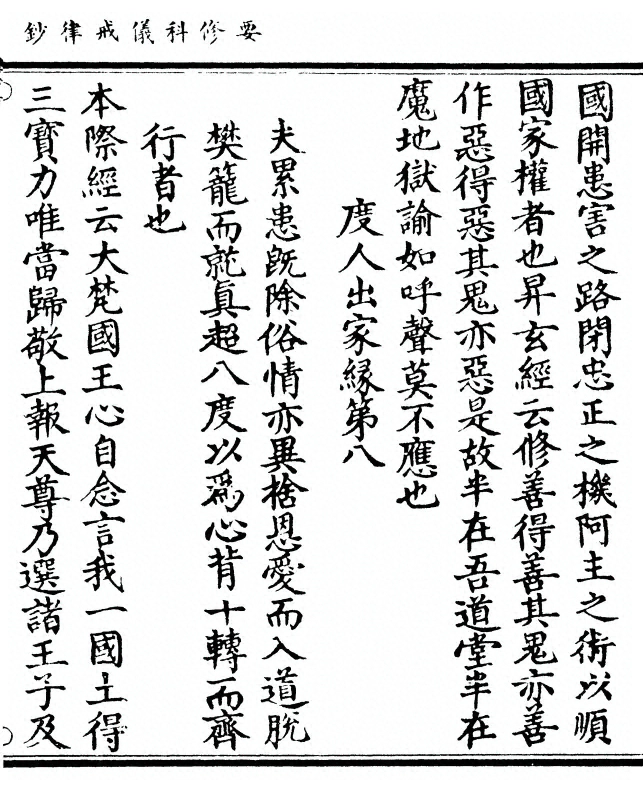 要修科儀戒律鈔
國開患害之路閉忠正之機阿主之術以順
國家權者也昇玄經云修善得善其鬼亦善
作惡得惡其鬼亦惡是故半在吾道堂半在
魔地獄諭如呼聲莫不應也
度人出家緣第八
夫累患旣除俗情亦異捨恩愛而入道脫
樊籠而就眞超八度以爲心背十轉而齊
行者也
本際經云大梵國王心自念言我一國土得
三寶力唯當歸敬上報天尊乃選諸王子及